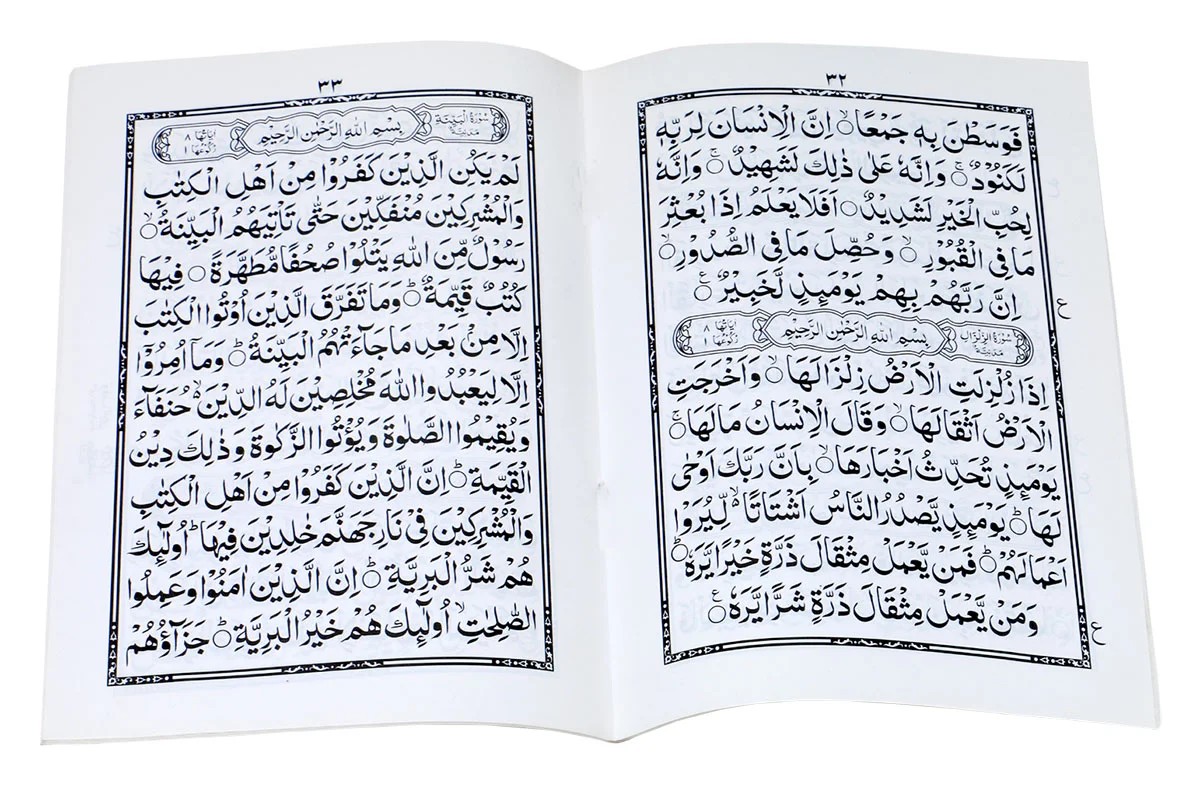 ٣٢
فَوَسَطْنَ بِهٖ جَمْعًا ۙ○ اِنَّ الْاِنْسَانَ لِرَبِّهٖ
لَكَنُوْدٌ ۚ○ وَاِنَّهٗ عَلٰى ذٰلِكَ لَشَهِيْدٌ ۚ○ وَاِنَّهٗ
لِحُبِّ الْخَيْرِ لَشَدِيْدٌ ○ اَفَلَا يَعْلَمُ اِذَا بُعْثِرَ
مَا فِى الْقُبُوْرِ ۙ○ وَحُصِّلَ مَا فِى الصُّدُوْرِ ۙ○
اِنَّ رَبَّهُمْ بِهِمْ يَوْمَئِذٍ لَّخَبِيْرٌ ○ع
ع
سُوْرَةُ الزِّلْزَالِ مَدَنِيَّةٌ بِسْمِ اللهِ الرَّحْمٰنِ الرَّحِيْمِ اٰيَاتُهَا ٨ رُكُوْعُهَا ١
اِذَا زُلْزِلَتِ الْاَرْضُ زِلْزَالَهَا ۙ○ وَاَخْرَجَتِ
الْاَرْضُ اَثْقَالَهَا ۙ○ وَقَالَ الْاِنْسَانُ مَا لَهَا ۚ○
يَوْمَئِذٍ تُحَدِّثُ اَخْبَارَهَا ۙ○ بِاَنَّ رَبَّكَ اَوْحٰى
لَهَا ؕ○ يَوْمَئِذٍ يَّصْدُرُ النَّاسُ اَشْتَاتًا ۙ۬ لِّيُرَوْا
اَعْمَالَهُمْ ؕ○ فَمَنْ يَّعْمَلْ مِثْقَالَ ذَرَّةٍ خَيْرًا يَّرَهٗ ؕ○
وَمَنْ يَّعْمَلْ مِثْقَالَ ذَرَّةٍ شَرًّا يَّرَهٗ ○ع
ع
٣٣
سُوْرَةُ الْبَيِّنَةِ مَدَنِيَّةٌ بِسْمِ اللهِ الرَّحْمٰنِ الرَّحِيْمِ اٰيَاتُهَا ٨ رُكُوْعُهَا ١
لَمْ يَكُنِ الَّذِيْنَ كَفَرُوْا مِنْ اَهْلِ الْكِتٰبِ
وَالْمُشْرِكِيْنَ مُنْفَكِّيْنَ حَتّٰى تَاْتِيَهُمُ الْبَيِّنَةُ ۙ○
رَسُوْلٌ مِّنَ اللهِ يَتْلُوْا صُحُفًا مُّطَهَّرَةً ○ فِيْهَا
كُتُبٌ قَيِّمَةٌ ؕ○ وَمَا تَفَرَّقَ الَّذِيْنَ اُوْتُوا الْكِتٰبَ
اِلَّا مِنْ بَعْدِ مَا جَآءَتْهُمُ الْبَيِّنَةُ ؕ○ وَمَا اُمِرُوْٓا
اِلَّا لِيَعْبُدُوا اللهَ مُخْلِصِيْنَ لَهُ الدِّيْنَ ۙ حُنَفَآءَ
وَيُقِيْمُوا الصَّلٰوةَ وَيُؤْتُوا الزَّكٰوةَ وَذٰلِكَ دِيْنُ
الْقَيِّمَةِ ؕ○ اِنَّ الَّذِيْنَ كَفَرُوْا مِنْ اَهْلِ الْكِتٰبِ
وَالْمُشْرِكِيْنَ فِيْ نَارِ جَهَنَّمَ خٰلِدِيْنَ فِيْهَا ؕ اُولٰٓئِكَ
هُمْ شَرُّ الْبَرِيَّةِ ؕ○ اِنَّ الَّذِيْنَ اٰمَنُوْا وَعَمِلُوا
الصّٰلِحٰتِ ۙ اُولٰٓئِكَ هُمْ خَيْرُ الْبَرِيَّةِ ؕ○ جَزَآؤُهُمْ